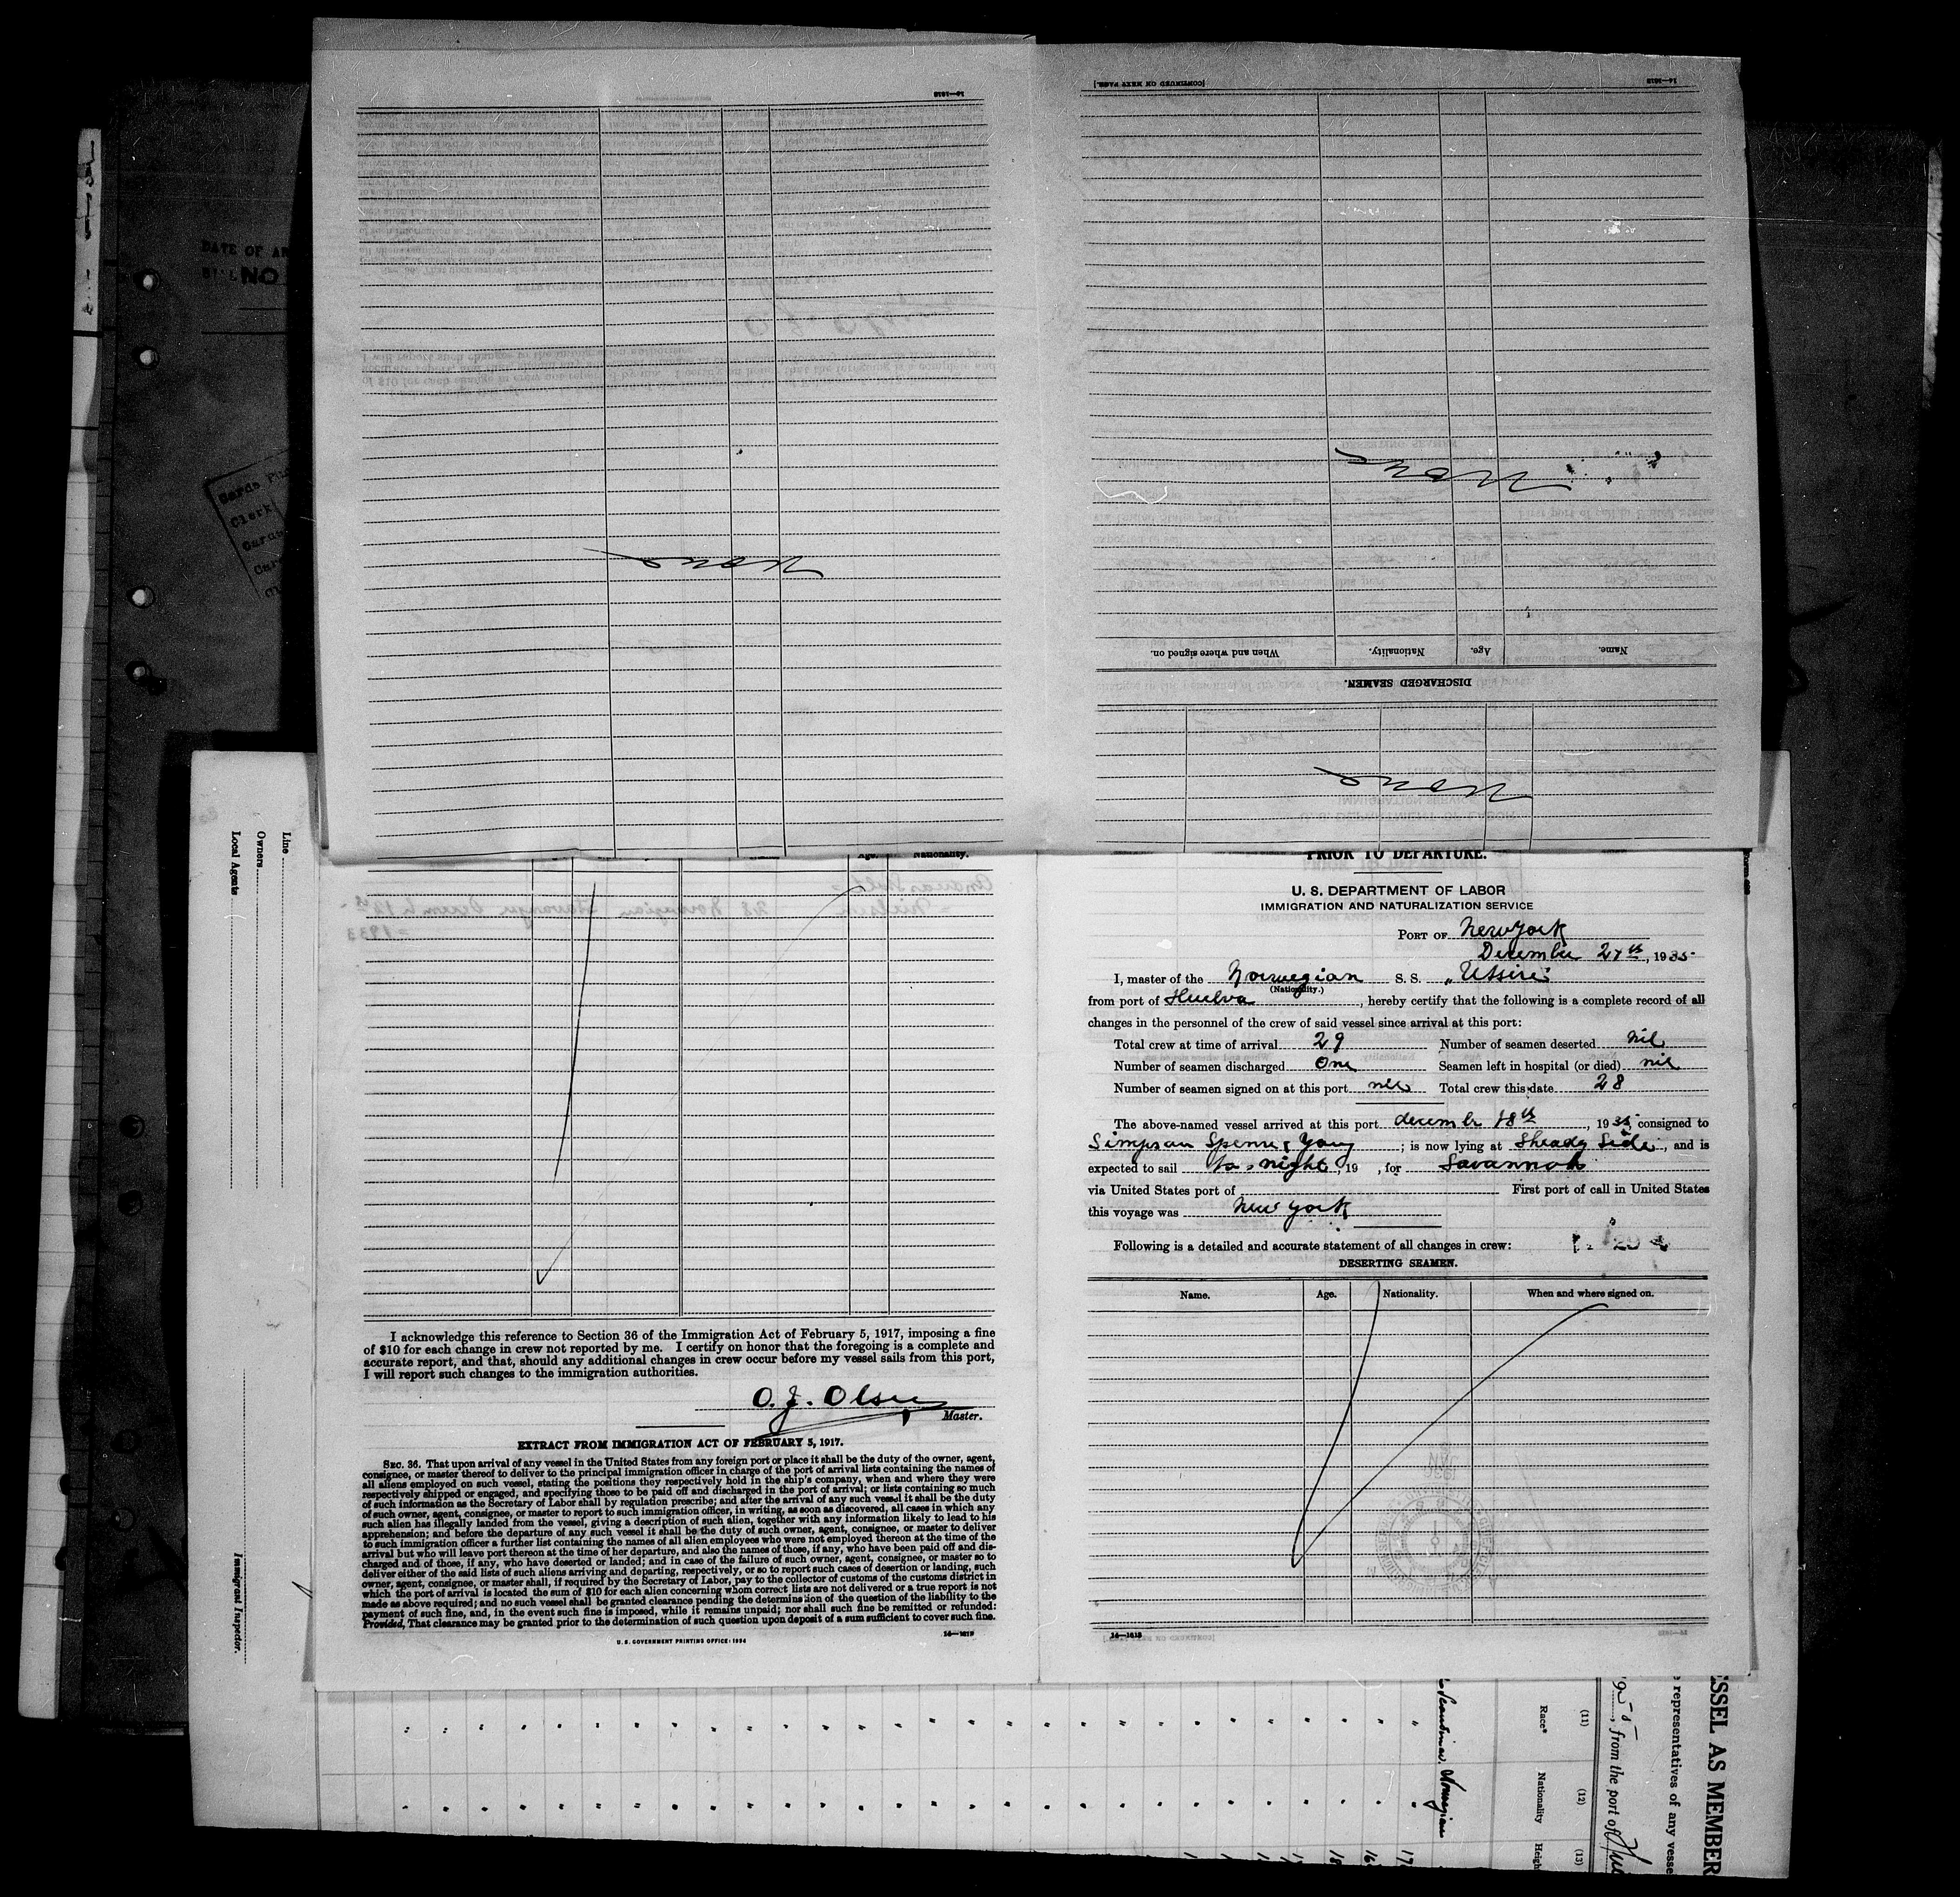 DATE OF
NO
Clerk
[CONTINUED ON NEXT PAGE.]
14—1618
14—1618
None
None
When and where signed on.
Nationality.
Age.
Name.
DISCHARGED SEAMEN.
None
Line
Owners
Local Agents
Immigrant Inspector.
Age.
Nationality.
I acknowledge this reference to Section 36 of the Immigration Act of February 5, 1917, imposing a fine
of $10 for each change in crew not reported by me. I certify on honor that the foregoing is a complete and
accurate report, and that, should any additional changes in crew occur before my vessel sails from this port,
I will report such changes to the immigration authorities.
O. J. Olsen
Master.
EXTRACT FROM IMMIGRATION ACT OF FEBRUARY 5, 1917.
SEC. 36. That upon arrival of any vessel in the United States from any foreign port or place it shall be the duty of the owner, agent,
consignee, or master thereof to deliver to the principal immigration officer in charge of the port of arrival lists containing the names of
all aliens employed on such vessel, stating the positions they respectively hold in the ship's company, when and where they were
respectively shipped or engaged, and specifying those to be paid off and discharged in the port of arrival; or lists containing so much
of such information as the Secretary of Labor shall by regulation prescribe; and after the arrival of any such vessel it shall be the duty
of such owner, agent, consignee, or master to report to such immigration officer, in writing, as soon as discovered, all cases in which any
such alien has illegally landed from the vessel, giving a description of such alien, together with any information likely to lead to his
apprehension; and before the departure of any such vessel it shall be the duty of such owner, agent, consignee, or master to deliver
to such immigration officer a further list containing the names of all alien employees who were not employed thereon at the time of the
arrival but who will leave port thereon at the time of her departure, and also the names of those, if any, who have been paid off and dis-
charged and of those, if any, who have deserted or landed; and in case of the failure of such owner, agent, consignee, or master so to
deliver either of the said lists of such aliens arriving and departing, respectively, or so to report such cases of desertion or landing, such
owner, agent, consignee, or master shall, if required by the Secretary of Labor, pay to the collector of customs of the customs district in
which the port of arrival is located the sum of $10 for each alien concerning whom correct lists are not delivered or a true report is not
made as above required; and no such vessel shall be granted clearance pending the determination of the question of the liability to the
payment of such fine, and, in the event such fine is imposed, while it remains unpaid; nor shall such fine be remitted or refunded:
Provided, That clearance may be granted prior to the determination of such question upon deposit of a sum sufficient to cover such fine.
U. S. GOVERNMENT PRINTING OFFICE: 1934
14—1618
PRIOR TO DEPARTURE.
U. S. DEPARTMENT OF LABOR
IMMIGRATION AND NATURALIZATION SERVICE
PORT OF New York
December 27th, 1935
I, master of the Norwegian S. S. "Utsire"
(Nationality.)
from port of Huelva, hereby certify that the following is a complete record of all
changes in the personnel of the crew of said vessel since arrival at this port:
Total crew at time of arrival 29 Number of seamen deserted nil
Number of seamen discharged One Seamen left in hospital (or died) nil
Number of seamen signed on at this port nil Total crew this date 28
The above-named vessel arrived at this port december 18th, 1935, consigned to
Simpson Spence & Young; is now lying at Sheady Side, and is
expected to sail to-night, 19 , for Savannah
via United States port of First port of call in United States
this voyage was New York
Following is a detailed and accurate statement of all changes in crew:
DESERTING SEAMEN.
Name. Age. Nationality. When and where signed on.
14—1618
ESSEL AS MEMBER
representatives of any vesse
, from the port of
(11)
(12)
(13)
Race*
Nationality
Heigh
Norwegian